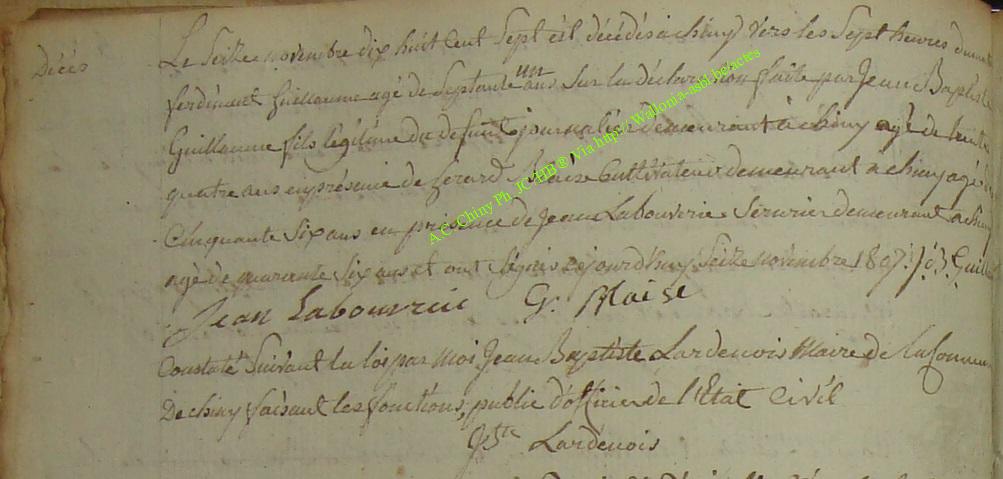 Décès
Le Seize novembre dix huit cent Sept est décédés a chiny vers les Sept heures du
ferdinant Guillaume agé de Septante un ans Sur la déclaration faite par Jean Baptiste
Guillaume fils légitime du defunt journalier demeurant a chiny agé de trente
quatre ans en présence de Gerard Blaise Cultivateur demeurant a chiny agé de
Cinquante Six ans en présence de Jean Labouverie Serurier demeurant a chiny
agé de quarante Six ans et ont Signés cejourd'huy Seize novembre 1807. J. B. Guill
Jean Labouverie G. Blaise
Constaté Suivant la loi par Moi Jean Baptiste Lardenois Maire de la Commun
De chiny faisant les fonctions, public d'officier de l'Etat Civil
JBte Lardenois
A.C. Chiny Ph. JC-HB ® Via http://Wallonia-asbl.be/actes